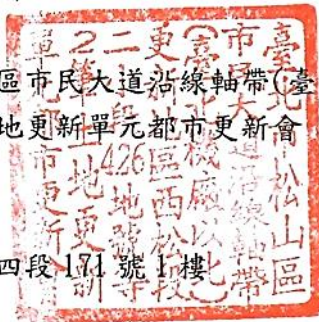 區市民大道沿線軸帶(臺
地更新單元都市更新會
四段 171 號 1 樓
臺北市松山區
市民大道沿線軸帶
(臺北機廠以北)
更新地區西松段
二小段426地號等
2筆土地更新
單元都市更新